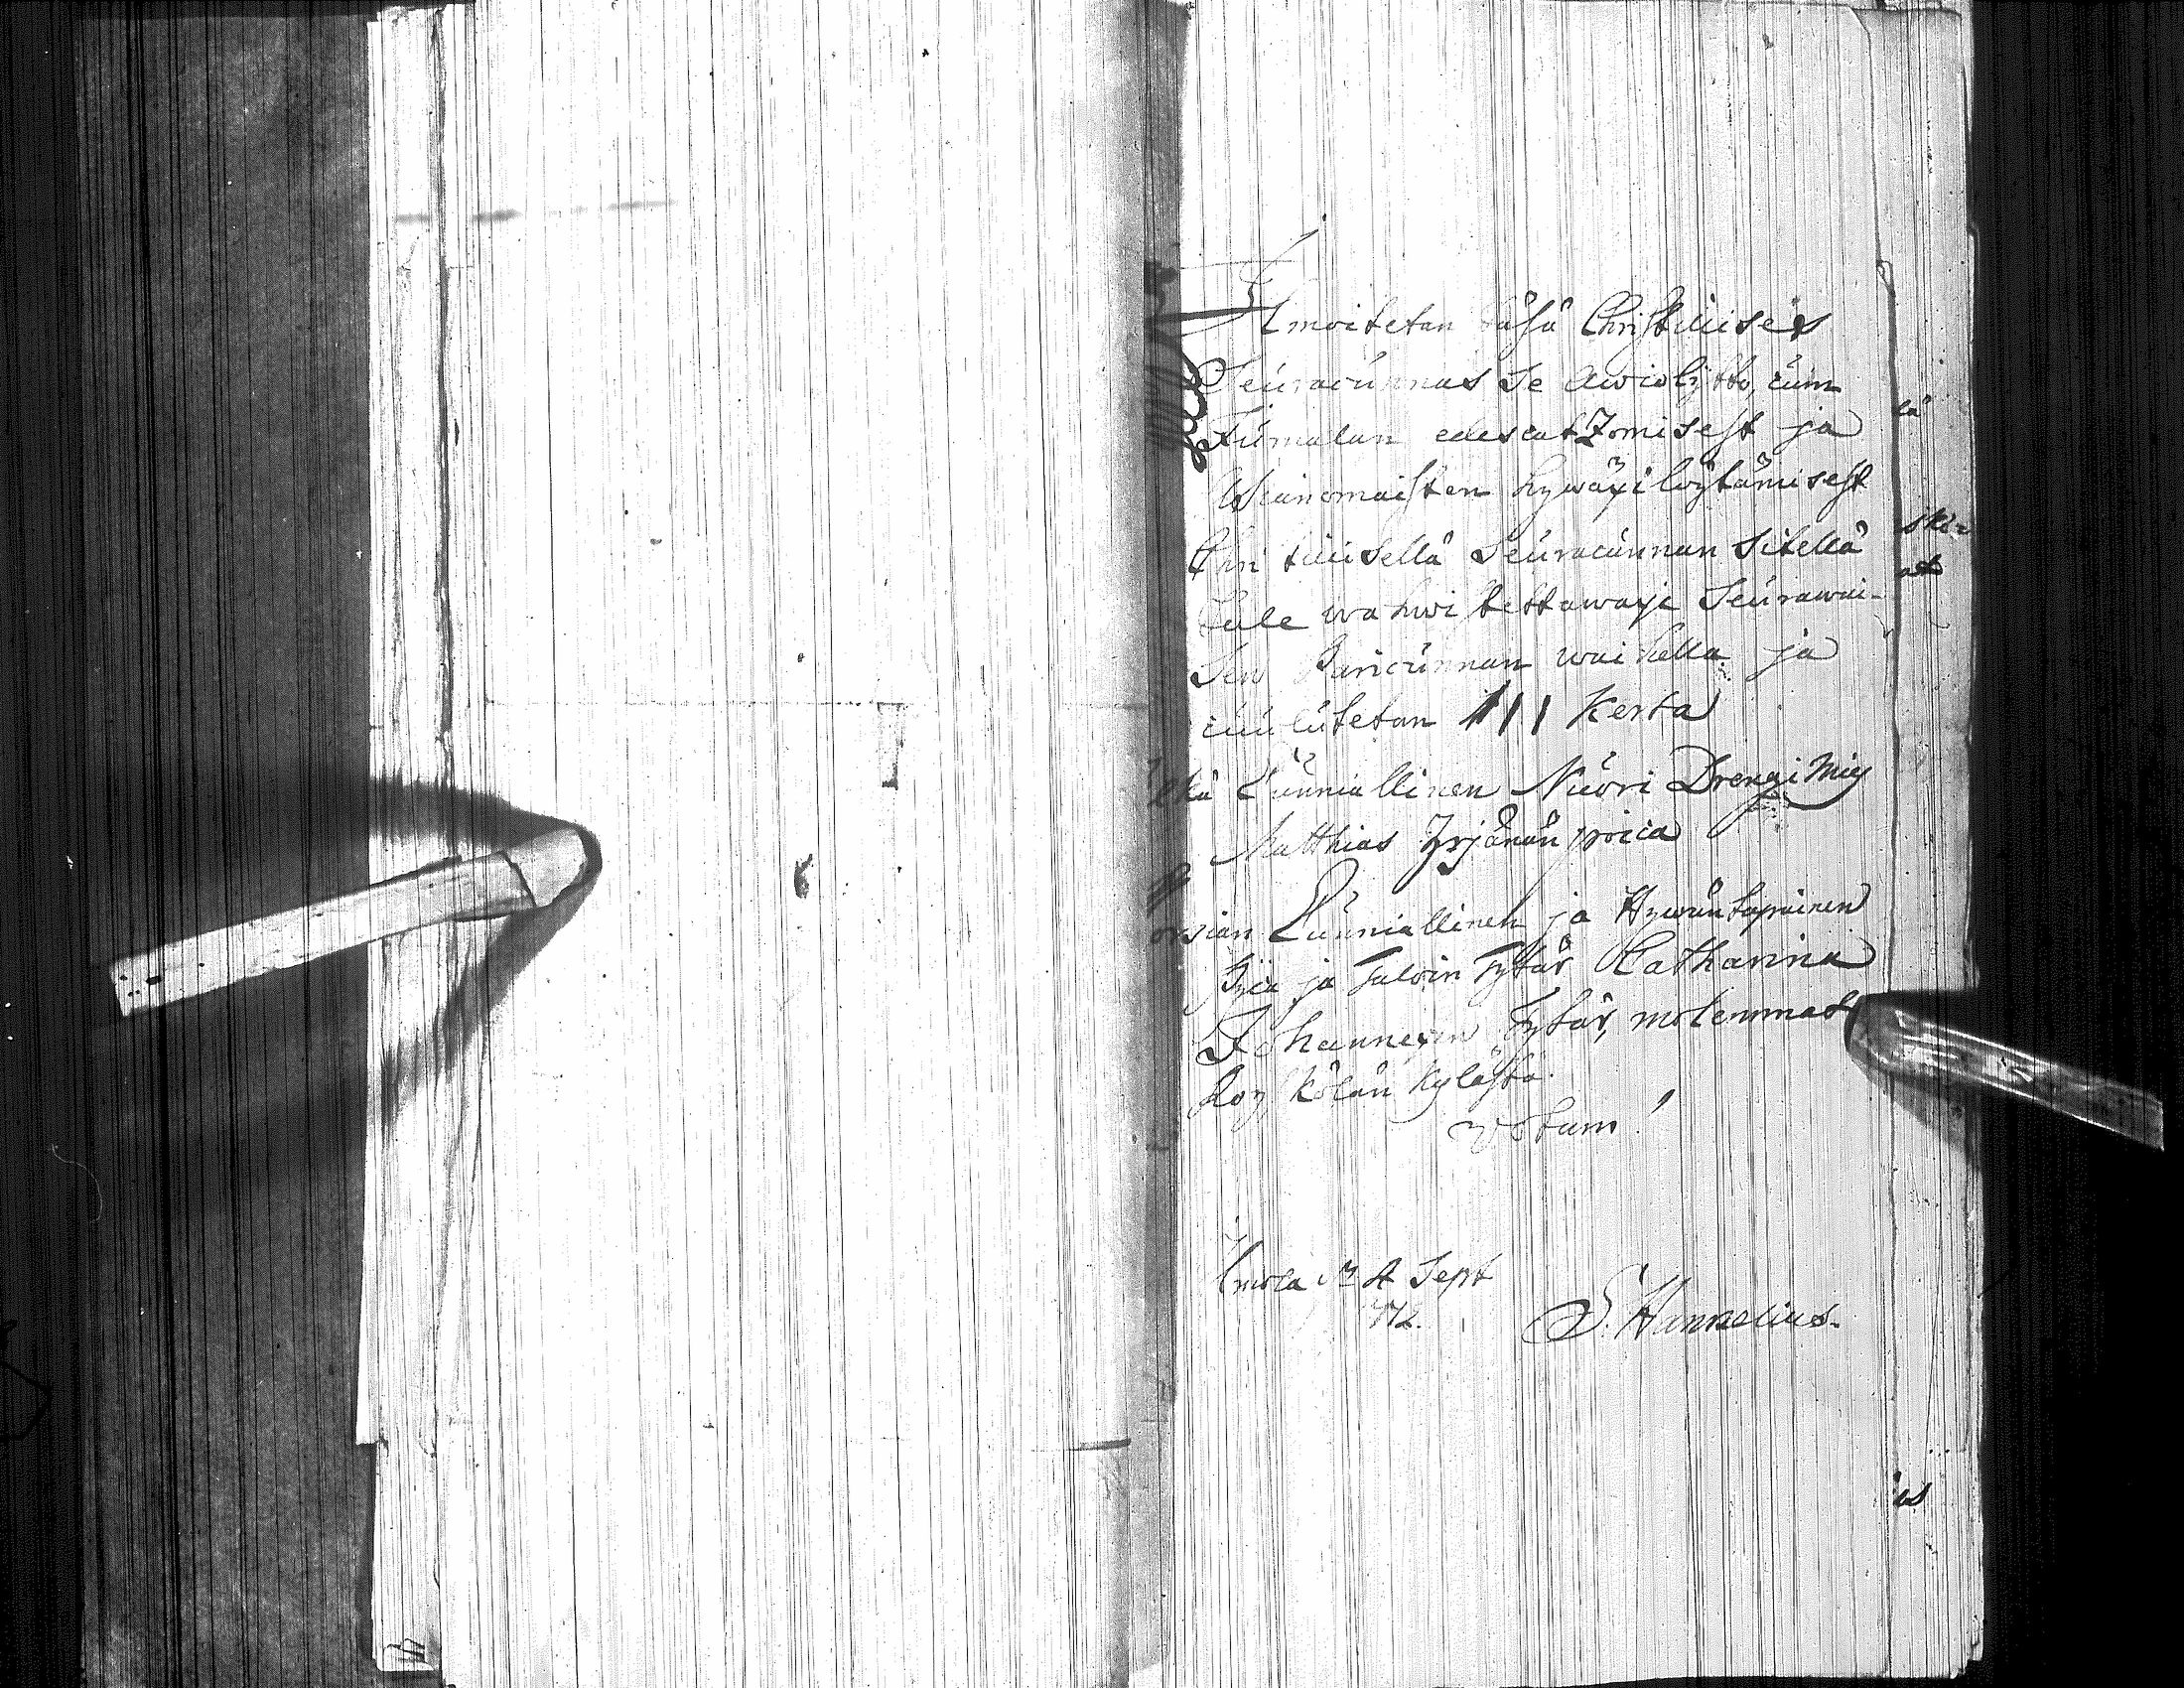 Ilmoitetan täsä Christillises
Seuracunnas se Awioliitto, cum
Jumalan edescatzomisest ja
Asianomaisten hywäxi löytämisest
Christillisellä Seuracunnan sitellä
tule wahwistettawaxi Seurawai-
sen Paricunnan waihella ja
cuulutetan III Kerta
Ylkä Cunniallinen Nuori Drengi Mies
Matthias Yrjänän poica
Morsian Cunniallinen ja Hywäntapainen
Pijca ja Taloin Tytär Catharina
Johannexen Tytär, molemmat
Kylästä.
Votum!
Ilmola 4 Sept
S. Hannelius.